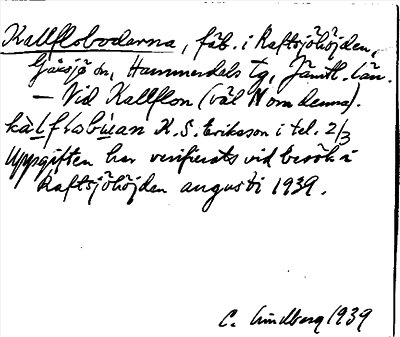 Kallflobodarna, fäb. i Raftsjöhöjden,
Gåxsjö sn, Hammerdals tg, Jämtl. län.
— Vid Kallflon (väl N om denna).
kàlflobùan K. S. Eriksson i tel. 2/3
Uppgiften har verifierats vid besök i
Raftsjöhöjden augusti 1939.
C. Lindberg 1939